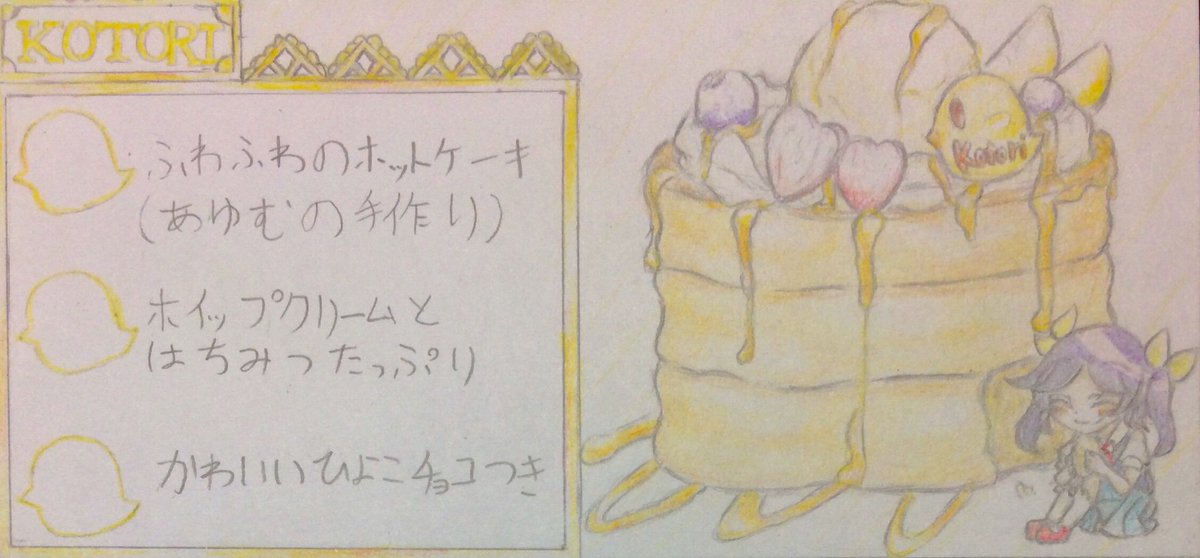 KOTORI
ふわふわのホットケーキ
(あゆむの手作り)
ホイップクリームと
はちみつたっぷり
かわいいひよこチョコつき
Kotori